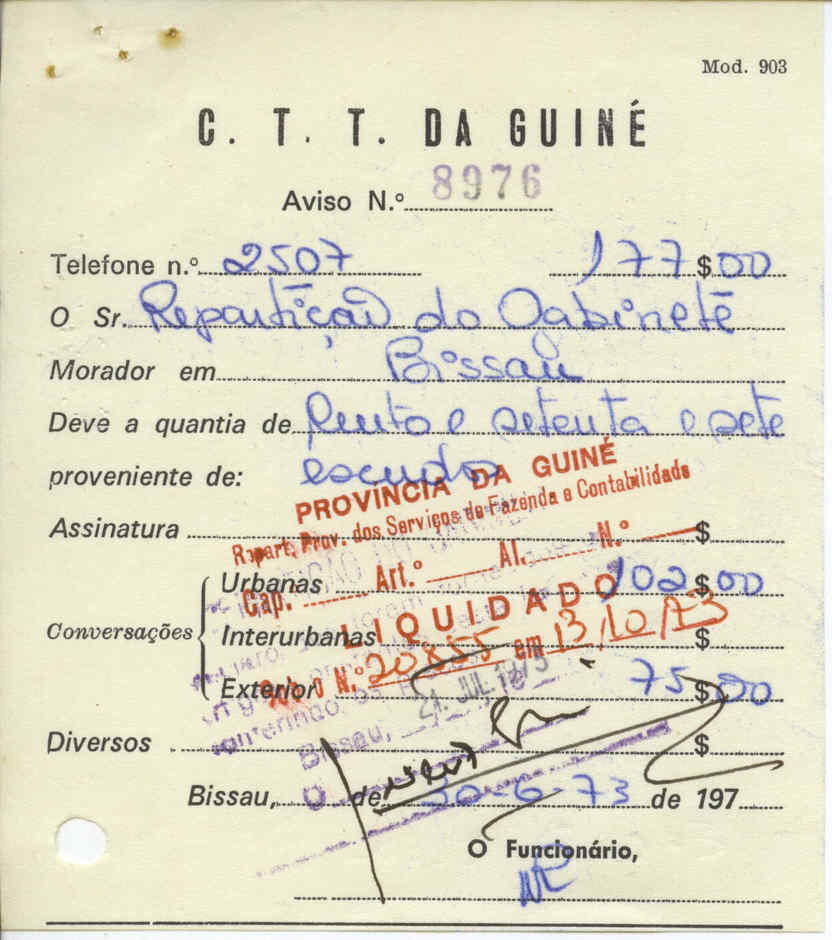 Mod. 903
C. T. T. DA GUINÉ
Aviso N.º 8976
Telefone n.º 2507 177$00
O Sr. Repartição do Gabinete
Morador em Bissau
Deve a quantia de cento e setenta e sete
proveniente de: escudos
PROVÍNCIA DA GUINÉ
Repart. Prov. dos Serviços de Fazenda e Contabilidade
Assinatura $
Cap. Art.º Al. N.º
Urbanas 102$00
LIQUIDADO
Conversações Interurbanas $
N.º 20855 em 13/10/73
Exterior 75$00
21. JUL 1973
Diversos $
Bissau,
Bissau, de 30-6-73 de 197
O Funcionário,